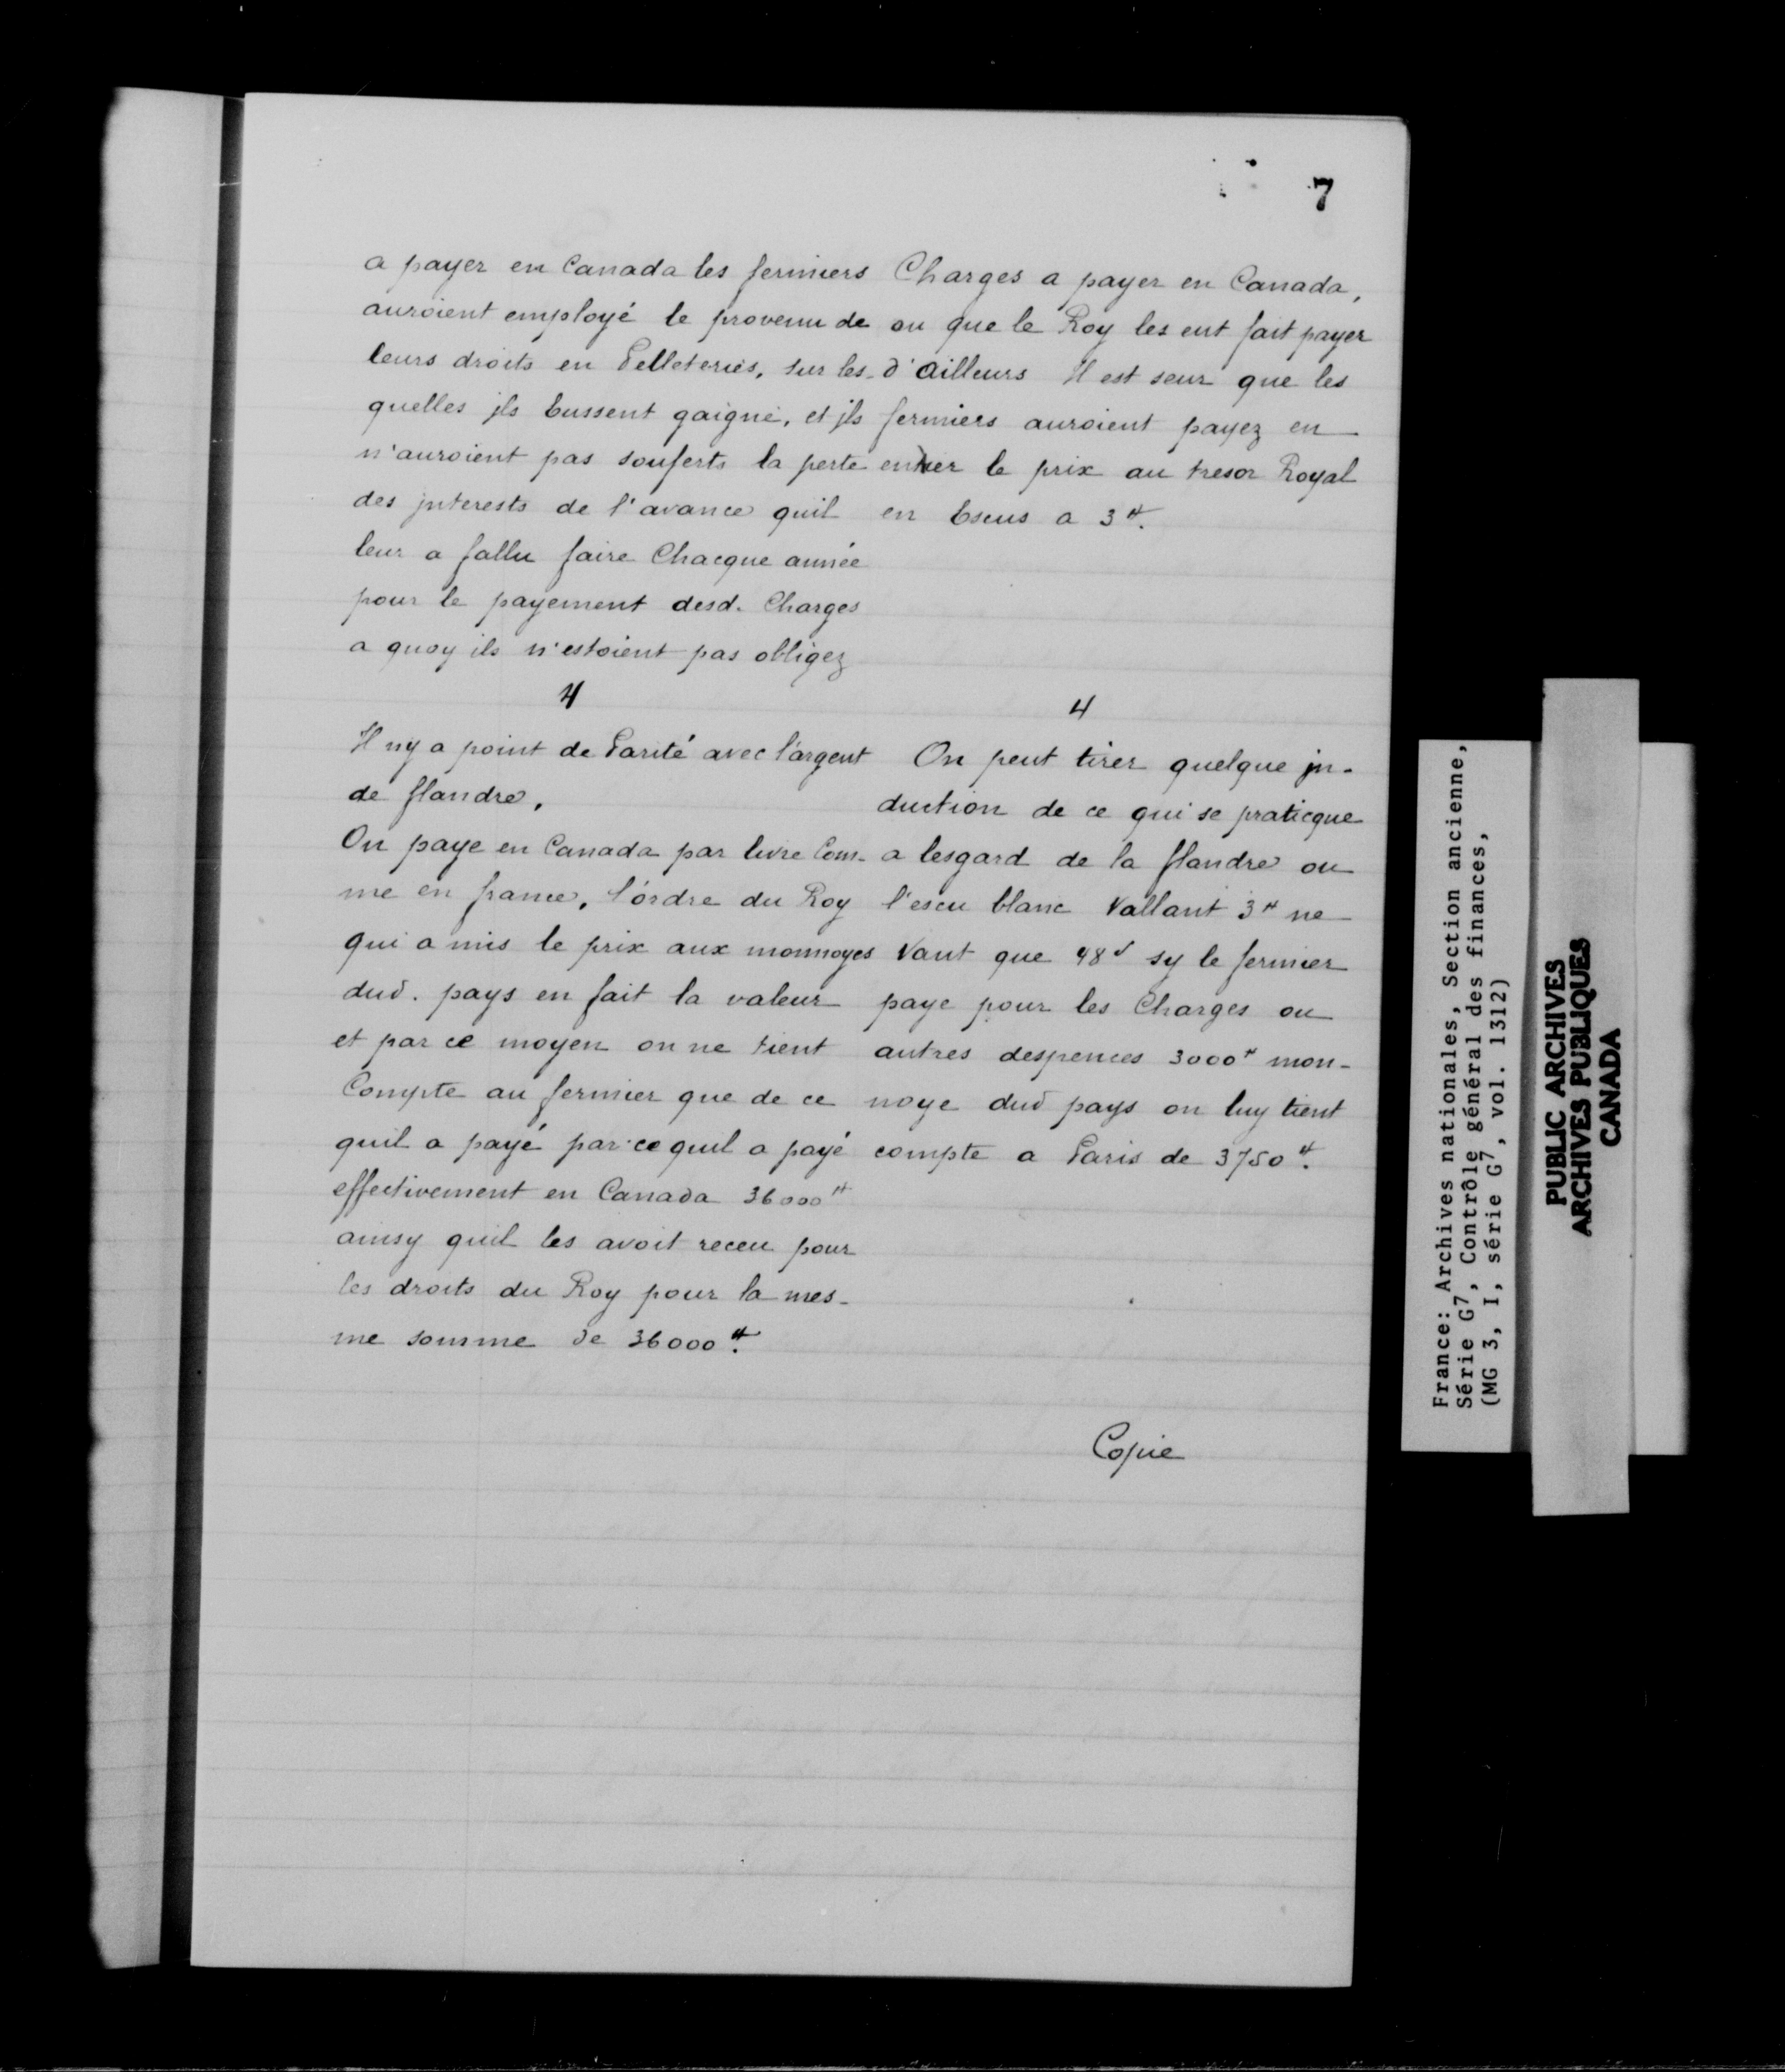 7
a payer en Canada les fermiers
auroient employé le provenu de
leurs droits en Pelleteries, sur les-
quelles jls Eussent gaigné, et jls
n'auroient pas souferts la perte
des jnterests de l'avance quil
leur a fallu faire Chacque année
pour le payement desd. Charges
a quoy ils n'estoient pas obligez
4
Il ny a point de Parité avec l'argent
de flandre,
On paye en Canada par livre Com-
me en france, l'ordre du Roy
qui a mis le prix aux monnoyes
dud. pays en fait la valeur
et par ce moyen on ne tient
Compte au fermier que de ce
quil a payé par ce quil a payé
effectivement en Canada 36000₶
ainsy quil les avoit receu pour
les droits du Roy pour la mes-
me somme de 36000₶.
Charges a payer en Canada,
ou que le Roy les eut fait payer
d'ailleurs Il est seur que les
fermiers auroient payez en
entier le prix au tresor Royal
en Escus a 3₶.
4
On peut tirer quelque jn-
duction de ce qui se praticque
a lesgard de la flandre ou
l'escu blanc Vallant 3₶ ne
Vaut que 48ˢ sy le fermier
paye pour les Charges ou
autres despences 3000₶ mon-
noye dud pays on luy tient
compte a Paris de 3750₶.
Copie
France: Archives nationales, Section ancienne,
Série G7, Contrôle général des finances,
(MG 3, I, série G7, vol. 1312)
PUBLIC ARCHIVES
ARCHIVES PUBLIQUES
CANADA